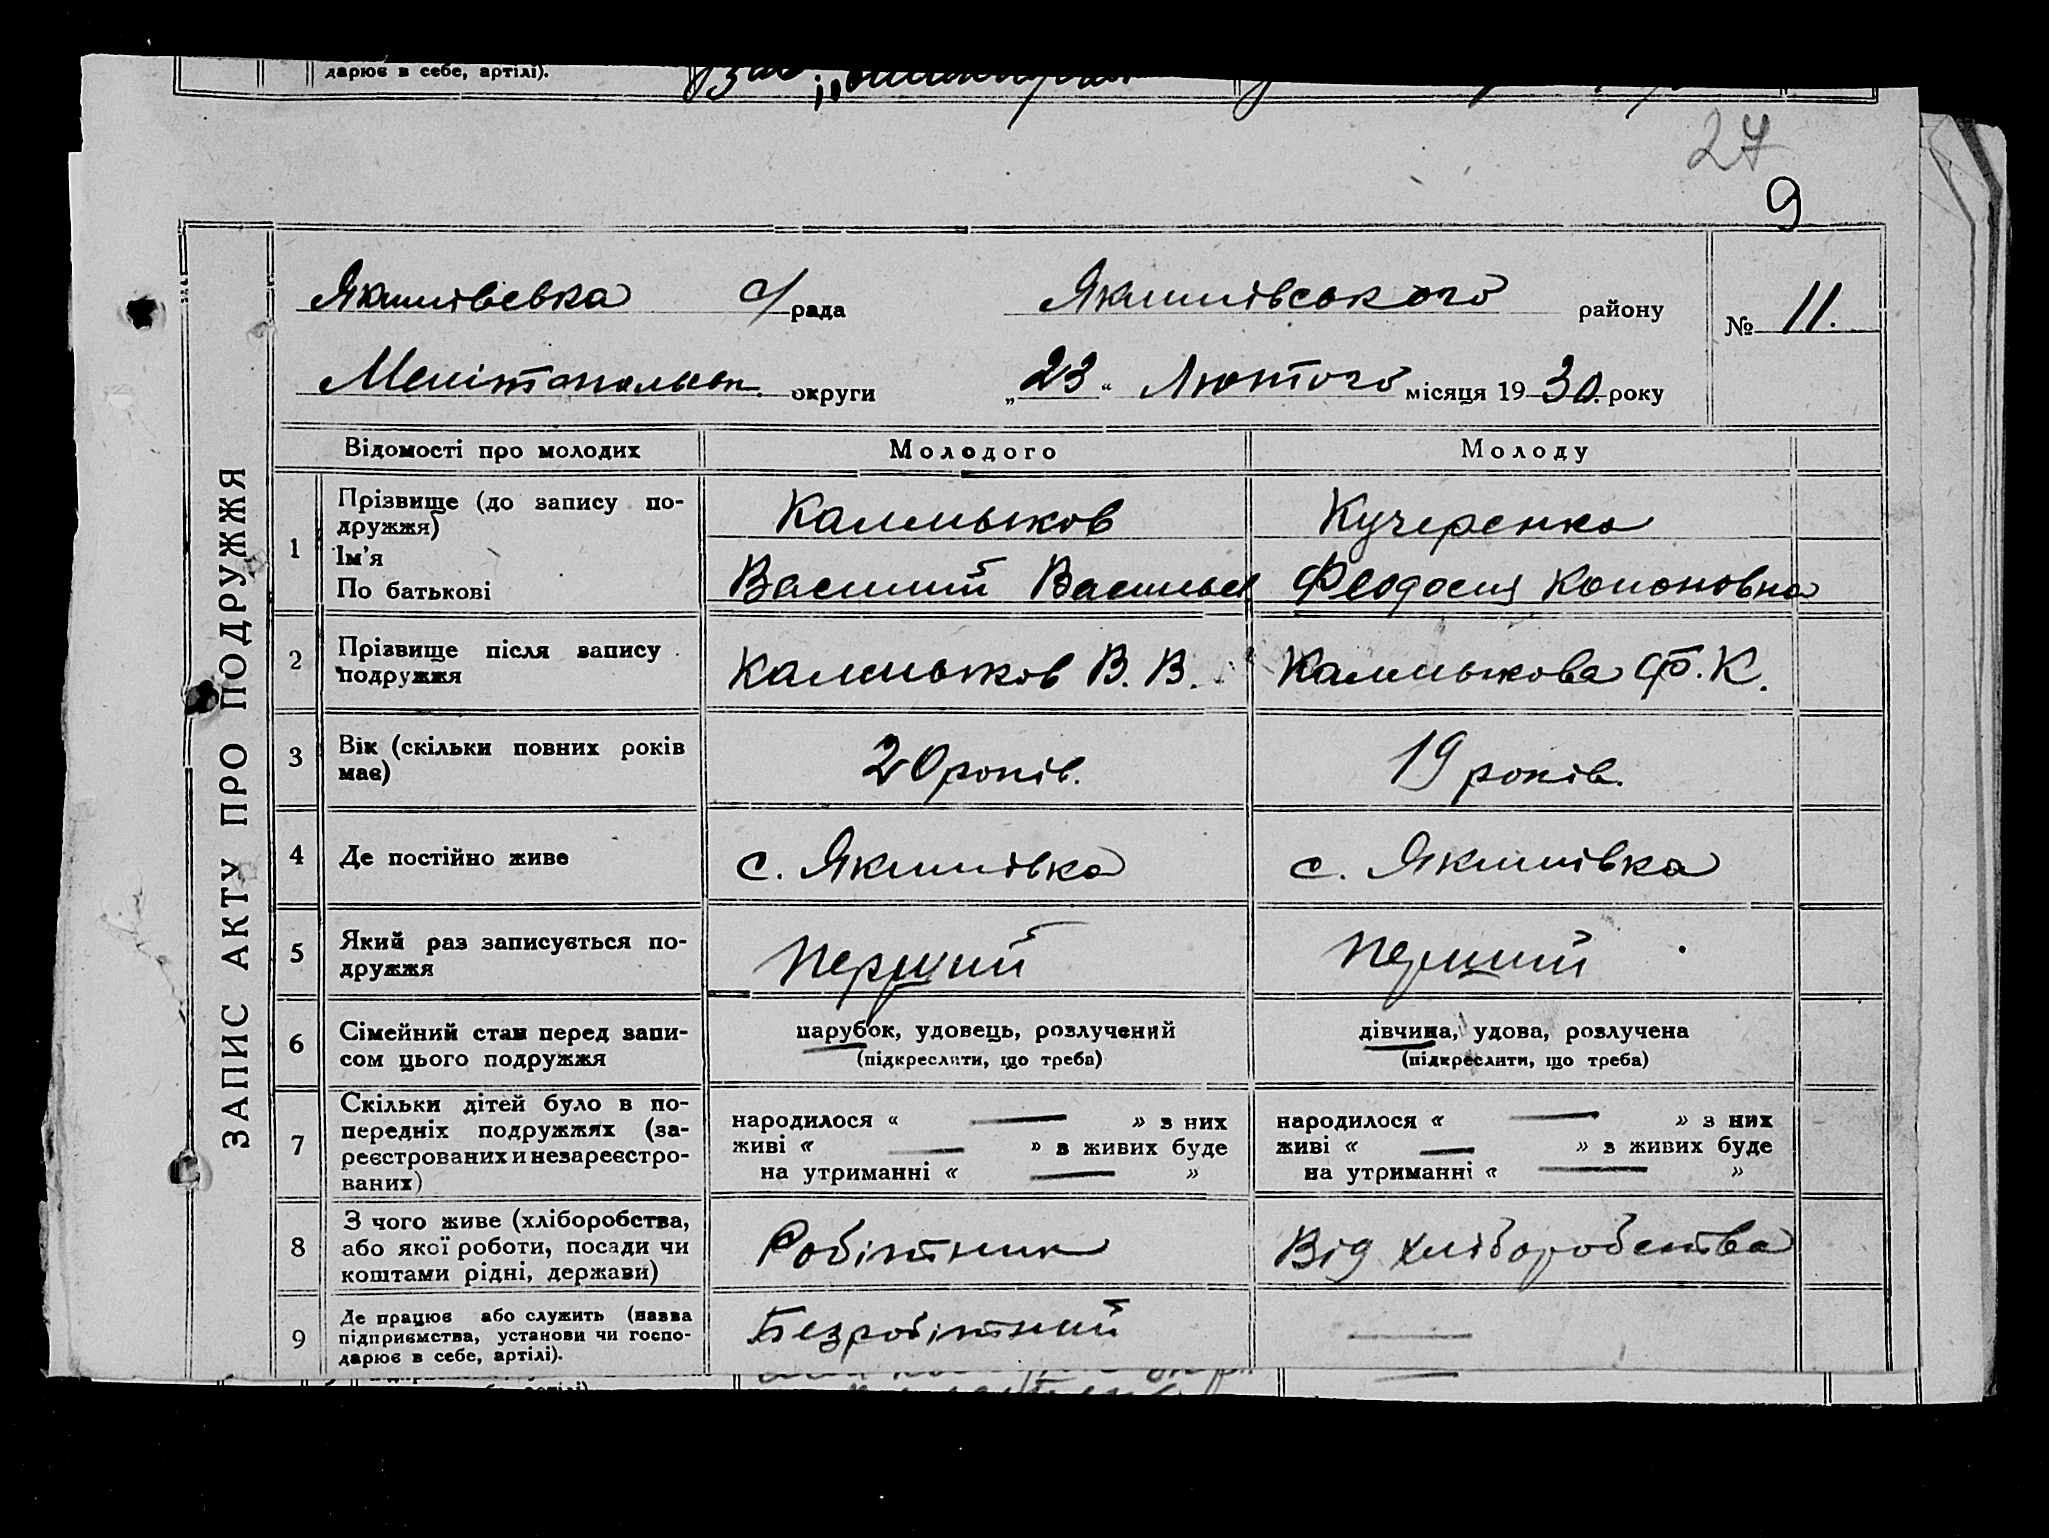 дарює в себе, артілі).
27
9
ЗАПИС АКТУ ПРО ПОДРУЖЖЯ
Якимівевка с/рада Якимівського району
№ 11.
Мелітопольськ. округи „23“ Лютого місяця 1930. року
Відомості про молодих Молодого Молоду
1 Прізвище (до запису по-
дружжя)
Ім'я
По батькові
Калмыков Кучеренко
Василий Васильев. Феодосия Кононовна
2 Прізвище після запису
подружжя
Калмыков В. В. Калмыкова Ф. К.
3 Вік (скільки повних років
має)
20 років. 19 років.
4 Де постійно живе с. Якимівка с. Якимівка
5 Який раз записується по-
дружжя
Перший Перший
6 Сімейний стан перед запи-
сом цього подружжя
парубок, удовець, розлучений дівчина, удова, розлучена
(підкреслити, що треба) (підкреслити, що треба)
7 Скільки дітей було в по-
передніх подружжях (за-
реєстрованих и незареєстро-
ваних)
народилося « — » з них народилося « — » з них
живі « — » з живих буде живі « — » з живих буде
на утриманні « — » на утриманні « — »
8 З чого живе (хліборобства,
або якої роботи, посади чи
коштами рідні, держави)
Робітник Від хліборобства
9 Де працює або служить (назва
підприємства, установи чи госпо-
дарює в себе, артілі).
Безробітний —